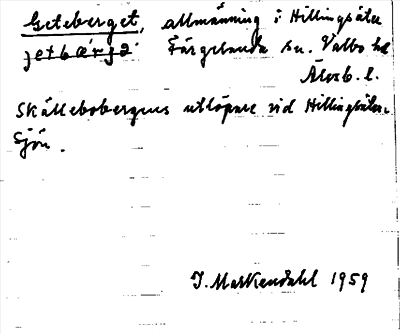 Geteberget, allmänning i Hillingsäter
jetbærjə Färgelanda sn. Valbo hd
Älvsb. l.
Skällebobergens utlöpare vid Hillingsäter-
sjön.
J. Markendahl 1959